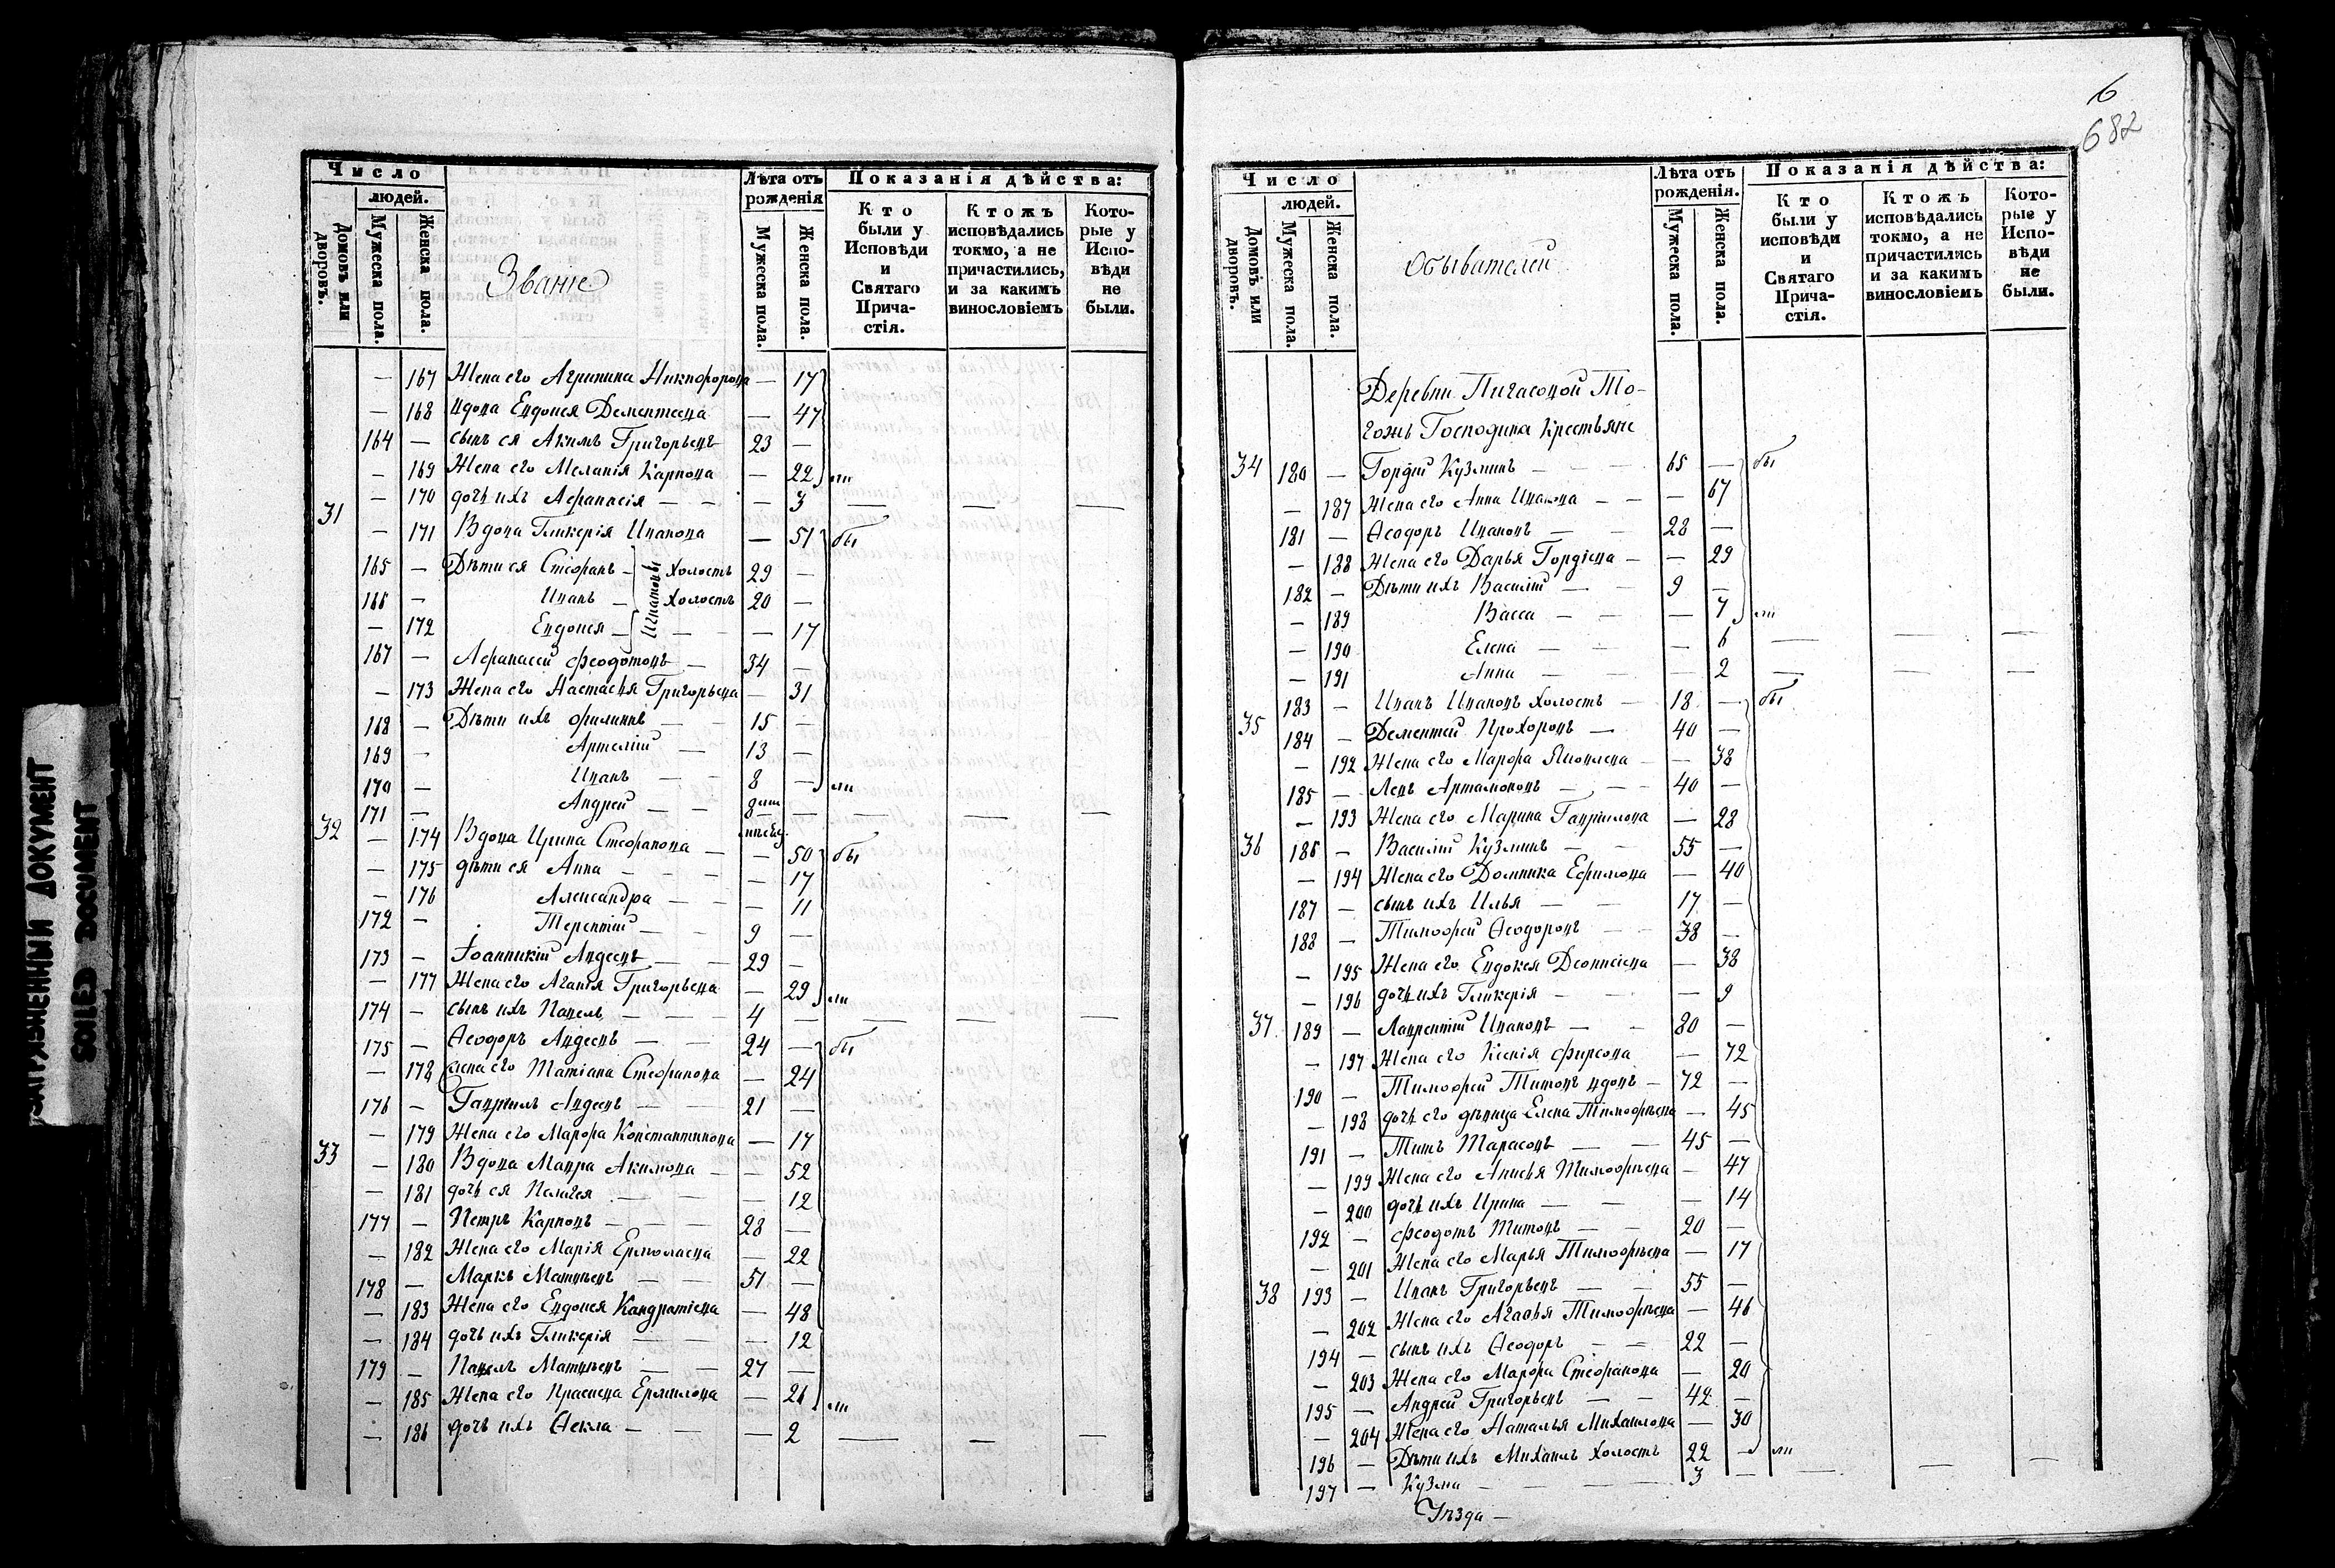 Число
людей.
Домовъ или дворовъ.
Мужеска пола.
Женска пола.
Званіе
Лѣта отъ рожденія
Мужеска пола.
Женска пола.
Показанія дѣйства:
Кто были у Исповѣди и Святаго Прича-стія.
Ктожъ исповѣдались токмо, а не причастились, и за какимъ винословіемъ
Кото-рые у Испо-вѣди не были.
— 167 Жена его Агрипина Никифорова — 17
— 168 вдова Евдокея Дементеева — 47
164 — сынъ ея Акимъ Григорьевъ 23 —
— 169 Жена его Меланія Карпова — 22 ли
— 170 дочь ихъ Афанасія — — — 3 — — —
31 — 171 Вдова Гликерія Иванова — 51 бы
165 — Дѣти ея Стефанъ — холостъ 29 —
166 — Иванъ — Холостъ 20 —
Игнатовы
— 172 Евдокея — — — 17
167 — Афанасей Феодотовъ — 34 —
— 173 Жена его Настасья Григорьева — 31
168 — Дѣти ихъ Филиппъ — — 15 —
169 — Артемій — 13 —
170 — Иванъ — — 8 — ли
171 — Андрей — — 8 — — — —
32 — 174 Вдова Ирина Стефанова — — 50 бы
— 175 дѣти ея Анна — — — — 17
— 176 Александра — — — 11
172 — Терентій — — 9 —
173 — Іоанникій Авдеевъ — — 29 —
— 177 Жена его Агапія Григорьева — 29 ли
174 — сынъ ихъ Павелъ — — — 4 — — — —
175 — Ѳеодоръ Авдеевъ — — 24 — бы
— 178 Жена его Татіана Стефанова — 24
176 — Гавріилъ Авдеевъ — — 21 —
— 179 Жена его Марфа Константинова — 17
33 — 180 Вдова Мавра Акимова — — 52
— 181 дочь ея Пелагея — — — 12
177 — Петръ Карповъ — — — 28 —
— 182 Жена его Марія Ермолаева — 22
178 — Маркъ Матвѣевъ — — 51 —
— 183 Жена его Евдокея Кандратіева — 48
— 184 дочь ихъ Гликерія — — — 12
179 — Павелъ Матвѣевъ — — 27 —
— 185 Жена его Прасковья Ермилова — 26 ли
— 186 дочь ихъ Ѳекла — — — 2 — — —
6
682
Число
людей.
Домовъ или дворовъ.
Мужеска пола.
Женска пола.
Обывателей
Лѣта отъ рожденія.
Мужеска пола.
Женска пола.
Показанія дѣйства:
Кто были у исповѣди и Святаго Прича-стія.
Ктожъ исповѣдались токмо, а не причастились и за какимъ винословіемъ
Кото-рые у Испо-вѣди не были.
Деревни Пигасовой То-
гожъ Господина Крестьяне
34 180 — Гордій Кузминъ — — — 65 — бы
— 187 Жена его Анна Иванова — — — 67
181 — Ѳеодоръ Ивановъ — — 28 —
— 188 Жена его Дарья Гордѣева — — 29
182 — Дѣти ихъ Василій — — 9 —
— 189 Васса — — — 7 ли
— 190 Елена — — — 6 — — —
— 191 Анна — — — 2 — — —
183 — Иванъ Ивановъ Холостъ — 18 — бы
35 184 — Дементей Прохоровъ — 40 —
— 192 Жена его Марфа Яковлева — — 38
185 — Левъ Артамоновъ — — — 40 —
— 193 Жена его Марина Гавриилова — 28
36 186 — Василій Кузминъ — — 55 —
— 194 Жена его Домника Ефимова — 40
187 — сынъ ихъ Илья — — 17 —
188 — Тимофей Ѳеодоровъ — — 38 —
— 195 Жена его Евдокея Деонисіева — 38
— 196 дочь ихъ Гликерія — — — 9
37 189 — Лаврентій Ивановъ — — 80 —
— 197 Жена его Ксенія Фирсова — 72
190 — Тимофей Титовъ вдовъ — 72 —
— 198 дочь его дѣвица Елена Тимофѣева — 45
191 — Титъ Тарасовъ — — 45 —
— 199 Жена его Анисья Тимофѣева — 47
— 200 дочь ихъ Ирина — — — 14
192 — Феодотъ Титовъ — — 20 —
— 201 Жена его Марья Тимофѣева — 17
38 193 — Иванъ Григорьевъ — — 55 —
— 202 Жена его Агафья Тимофѣева — 46
194 — сынъ ихъ Ѳеодоръ — — 22 —
— 203 Жена его Марфа Стефанова — 20
195 — Андрей Григорьевъ — — 42 —
— 204 Жена его Наталья Михаилова — 30
196 — Дѣти ихъ Михаилъ холостъ 22 — ли
197 — Кузма — — — 3 — — — —
Уѣзда —
ЗАГРЯЗНЕННЫЙ ДОКУМЕНТ
SOILED DOCUMENT